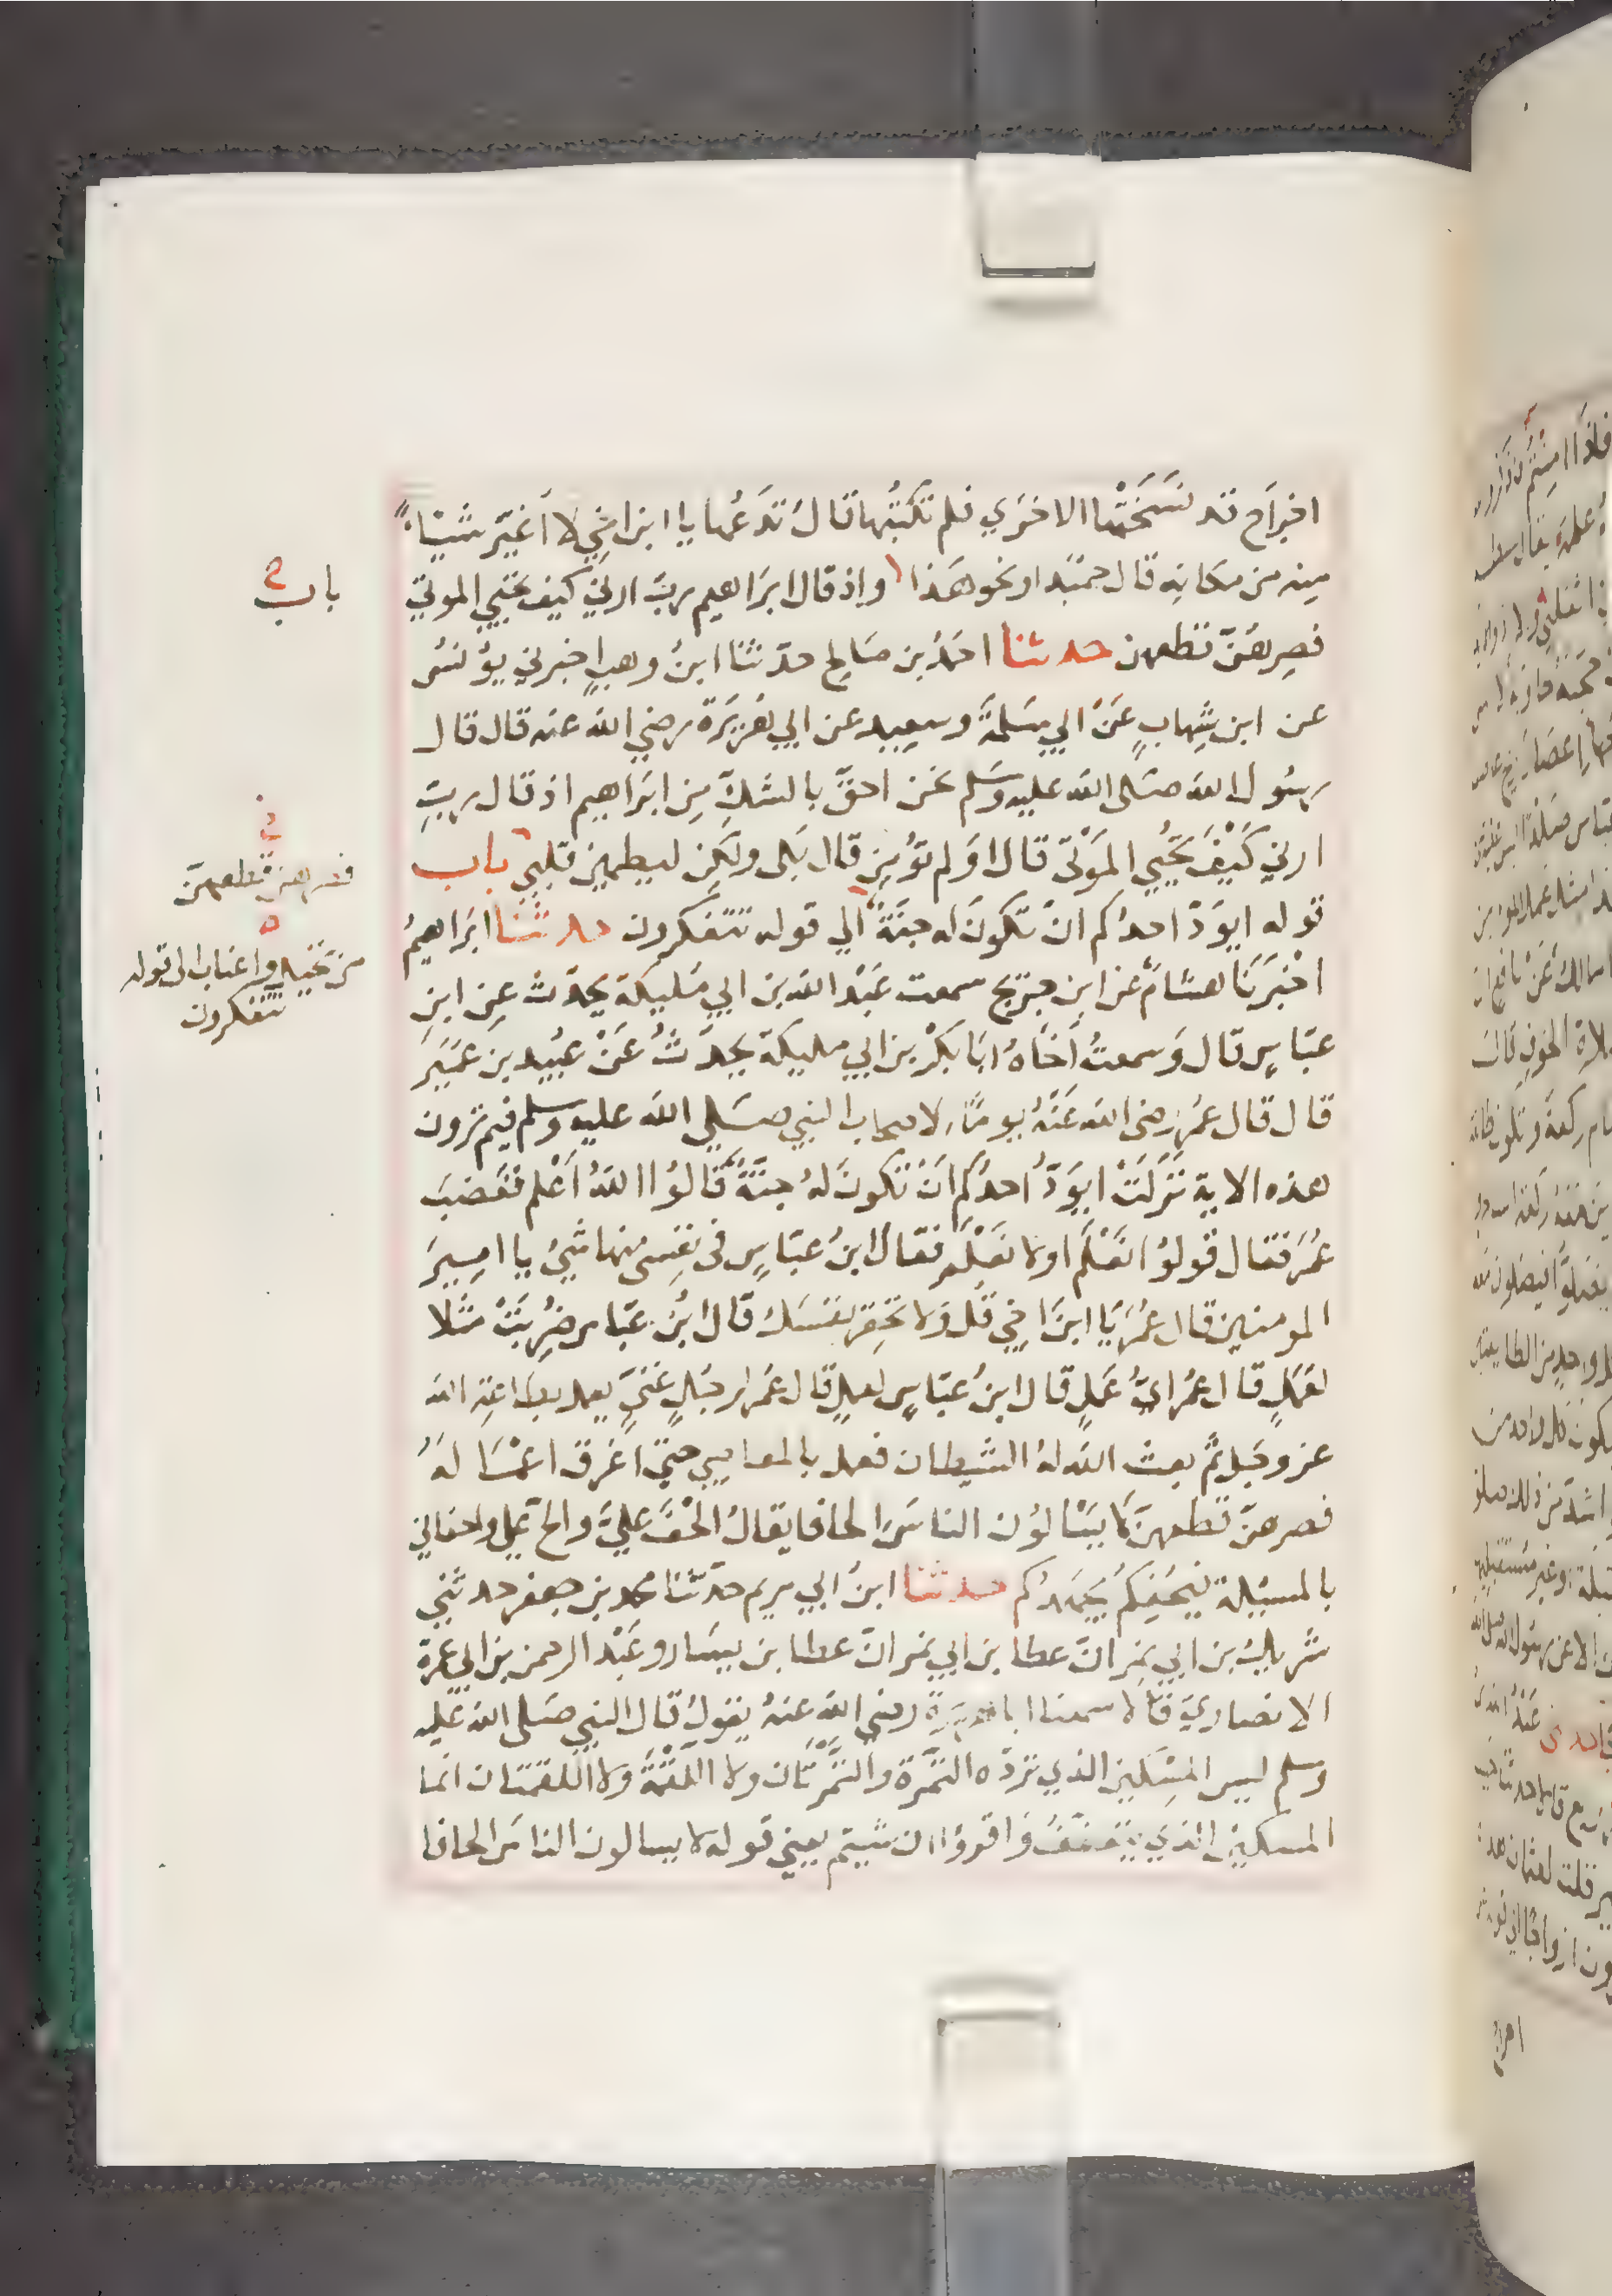 اخراج قد نسختها الاخرى فلم تكتبها قال تدعها يا ابن اخي لا اغير شيئا
منه من مكانه قال حميد او نحو هذا واذ قال ابراهيم رب ارني كيف تحيي الموتى
باب
فصرهن قطعهن حدثنا احمد بن صالح حدثنا ابن وهب اخبرني يونس
عن ابن شهاب عن ابي سلمة وسعيد عن ابي هريرة رضي الله عنه قال قال
رسول الله صلى الله عليه وسلم نحن احق بالشك من ابراهيم اذ قال رب
ارني كيف تحيي الموتى قال اولم تؤمن قال بلى ولكن ليطمين قلبي باب
فصرهن قطعهن
قوله ايود احدكم ان تكون له جنة الي قوله تتفكرون حدثنا ابراهيم
من نخيل واعناب الى قوله
تتفكرون
اخبرنا هشام عن ابن جريج سمعت عبد الله بن ابي مليكة يحدث عن ابن
عباس قال وسمعت اخاه ابا بكر بن ابي مليكة يحدث عن عبيد بن عمير
قال قال عمر رضي الله عنه يوما لاصحاب النبي صلي الله عليه وسلم فيم ترون
هذه الاية نزلت ايود احدكم ان تكون له جنة قالوا الله اعلم فغضب
عمر فقال قولوا نعلم او لا نعلم فقال ابن عباس في نفسي منها شيئ يا امير
المومنين قال عمر يا ابن اخي قل ولا تحقر نفسك قال ابن عباس ضربت مثلا
لعمل قال عمر اي عمل قال ابن عباس لعمل قال عمر لرجل غني يعمل بطاعة الله
عز وجل ثم بعث الله له الشيطان فعمل بالمعاصي حتي اغرق اعماله
فصرهن قطعهن لا يسالون الناس الحافا يقال الحف علي والح علي واحفاني
بالمسيلة فيحفكم يجهدكم حدثنا ابن ابي مريم حدثنا محمد بن جعفر حدثني
شريك بن ابي نمر ان عطا بن ابي نمر ان عطا بن يسار وعبد الرحمن بن ابي عمرة
الانصاري قالا سمعنا ابا هريرة رضي الله عنه يقول قال النبي صلى الله عليه
وسلم ليس المسكين الذي ترده التمرة والتمرتان ولا اللقمة ولا اللقمتان انما
المسكين الذي يتعفف واقرؤا ان شيتم يعني قوله لا يسالون الناس الحافا